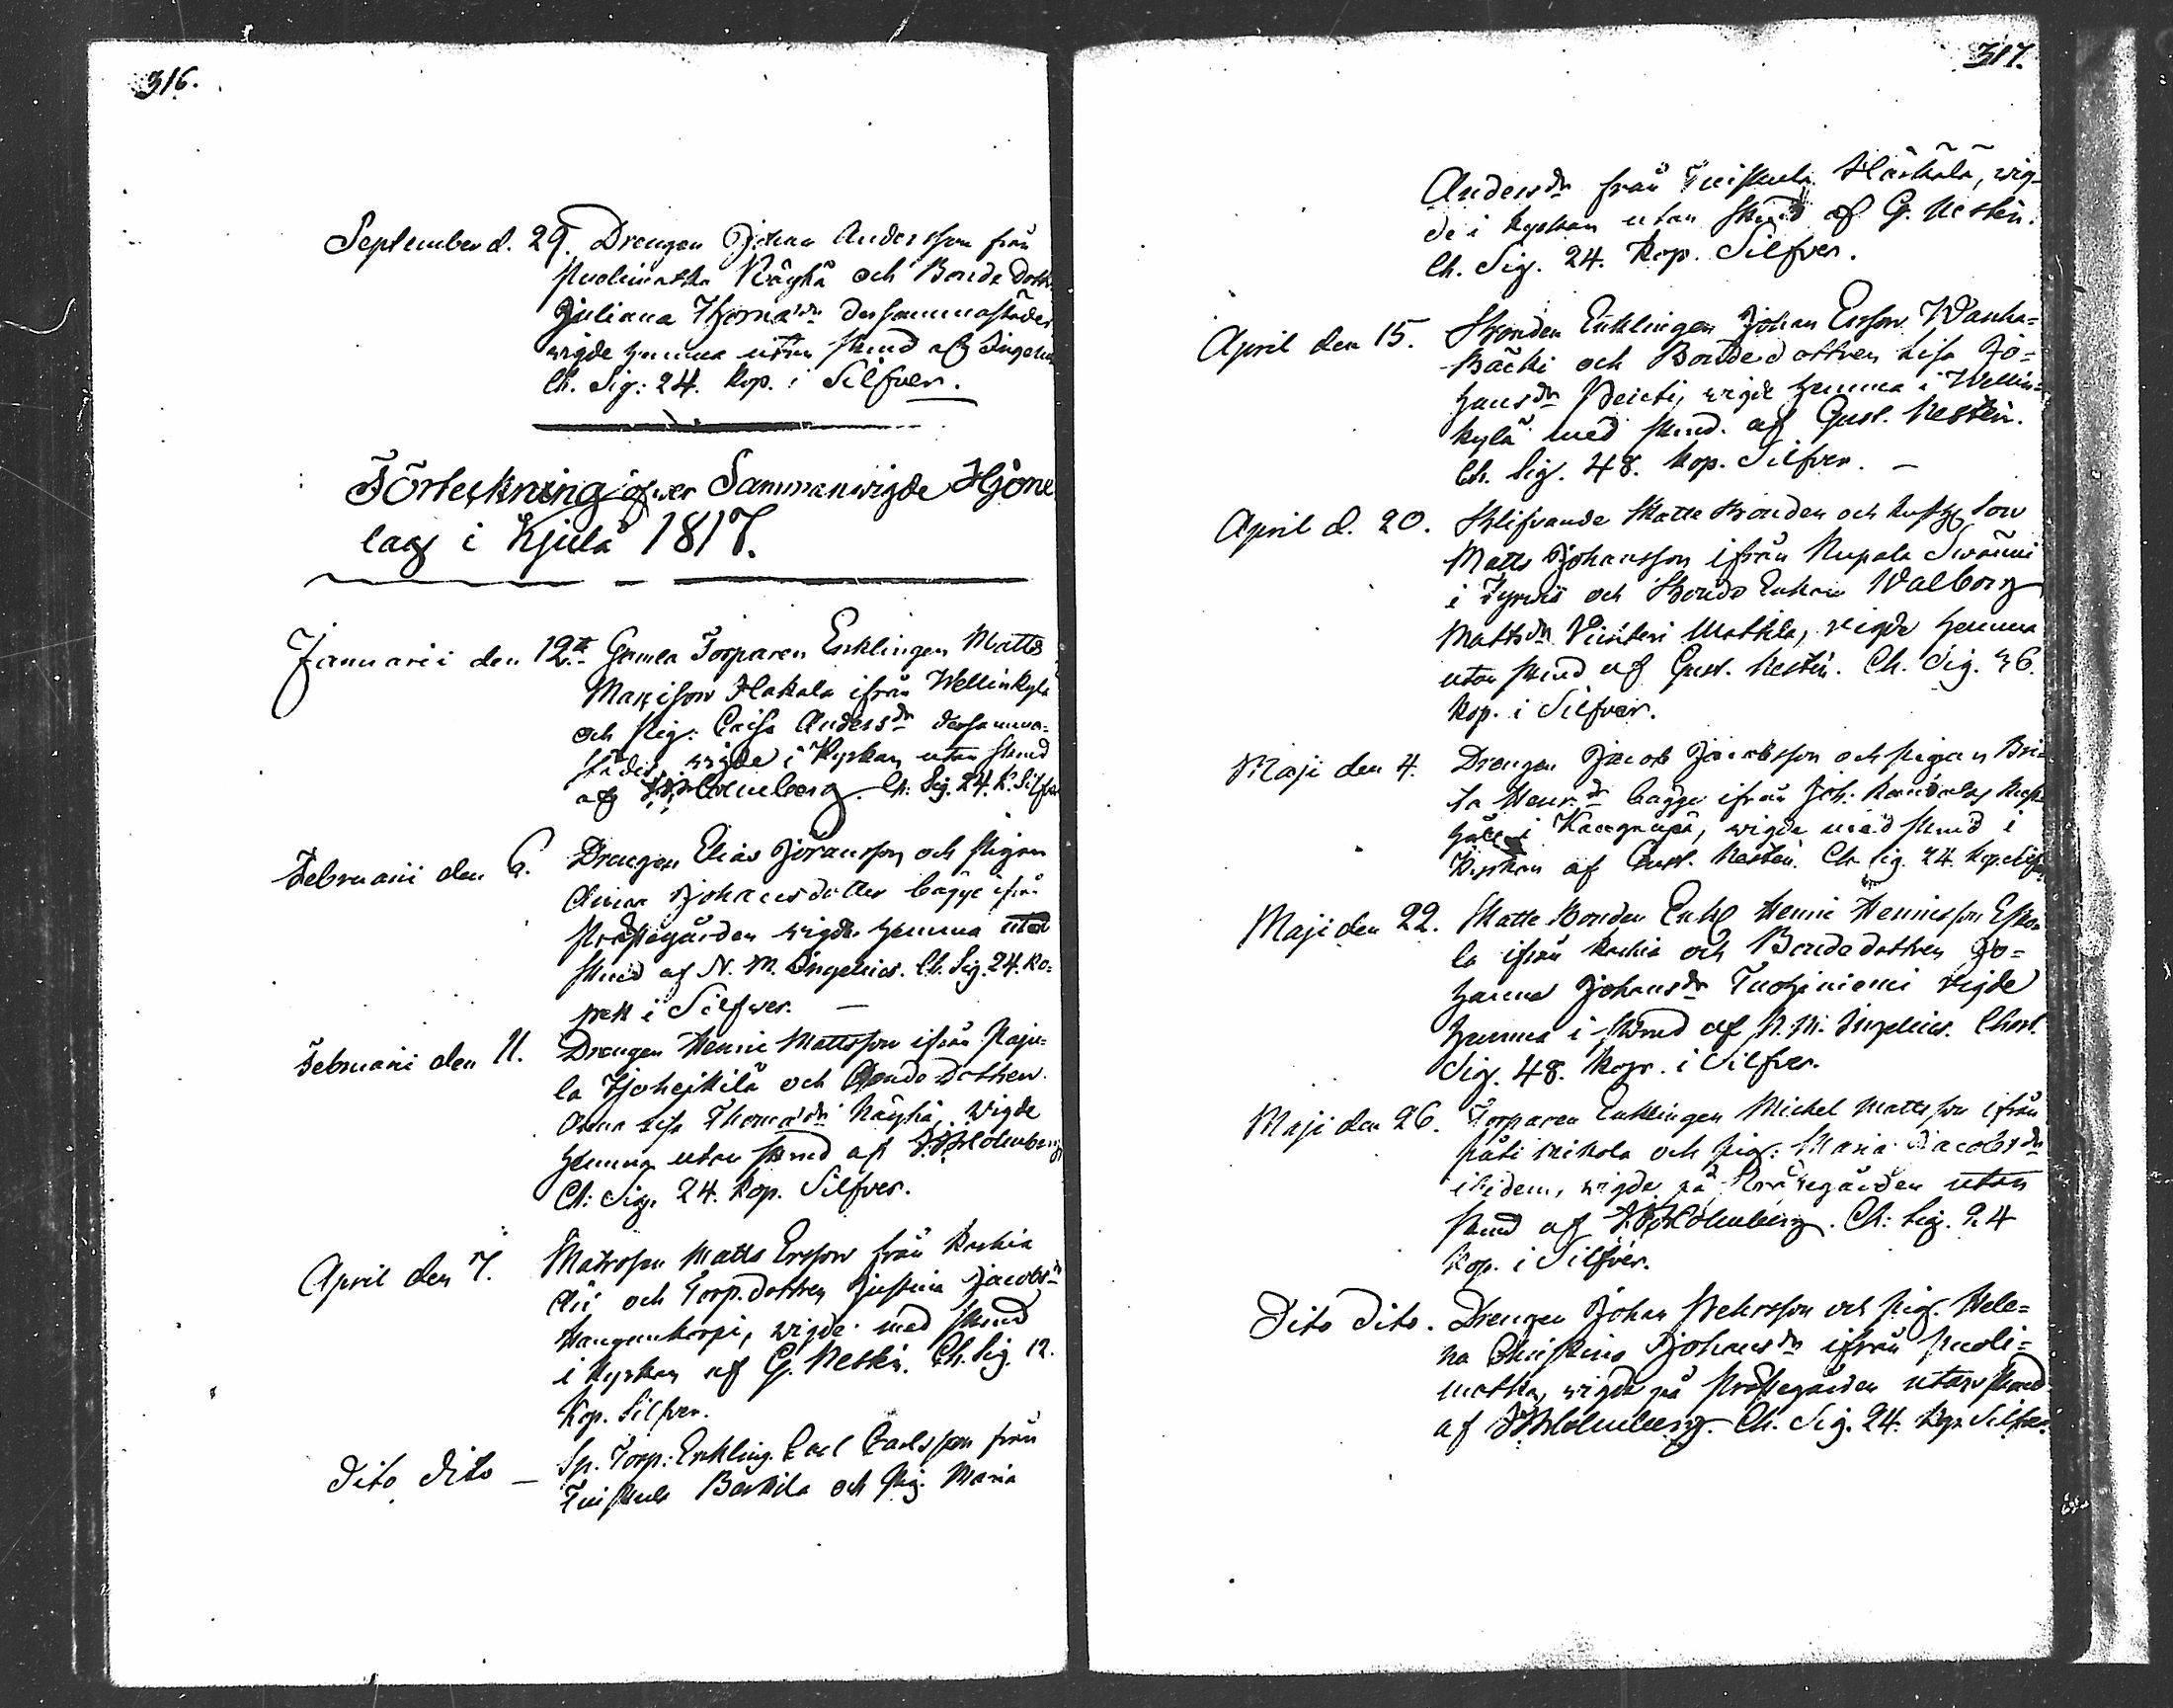 316.
September d. 29. Drengen Johan Andersson från
Puolimatka Näyhä och Bonde Dottr
Juliana Thomædr dersammastädes
wigde hemma utan brud af Ingelius
Ch. Sig: 24. Kop. i Silfver.
Förteckning öfwer Sammanwigde Hjone
lag i Kjulå 1817.
Januarii den 12te Gamla Torparen Enklingen Matts
Hakala ifrån Wellinkylä
och Pig: Caisa Andersdr dersamma-
städes, wigde i Kyrkan utan brud
af Holmberg. Ch: Sig. 24. K. Silfver
Februarii den 6. Drengen Elias Göransson och Pigan
Anna Johansdotter bägge ifrån
Prästegården wigde hemma utan
brud af N. M. Ingelius. Ch. Sig. 24. Ko-
pek i Silfwer.
Februarii den 11. Drengen Henric Mattsson ifrån Paju-
la och Bonde Dottren
Anna Lisa Thomædr Näyhä, Wigde
hemma utan brud af Holmberg
Ch: Sig. 24. Kop. Silfver.
April den 7. Matrosen Matts Ersson från Raskia
och Torp.dottren Justina Jacobsdr
Kangenkorpi, wigde med brud
i Kyrkan af G. Nestén. Ch. Sig. 12.
Kop. Silfver.
Dito Dito — Sp. Torp: Enkling. Carl Carlsson från
Tuiskula Barkila och Pig. Maria
317.
Andersdr från Tuiskula Härkälä, wig-
de i Kyrkan utan brud af G. Nestén.
Ch. Sig. 24. Kop. Silfver.
April den 15. Bonden Enklingen Johan Ersson Wanha-
Bäcki och Bondedottren Lisa Jo-
hansdr Penti, wigde hemma i Wellin-
kylä med brud. af Gust. Nestén.
Ch. Sig. 48. Kop. Silfver. —
April d. 20. Blifvande Skatte Bonden och Rusth. Son
Matts Johansson ifrån Nupala Swänni
i Tyrwis och Bonde Enkan Walborg
Mattsdr Mattila, wigde hemma
utan brud af Gust. Nestén. Ch. Sig. 36.
Kop. i Silfver.
Maji den 4. Drengen Jacob Jacobsson och Pigan Bri-
ta Henr.dr bägge ifrån Joh:
i wigde med brud i
Kyrkan af Gust. Nestén. Ch. Sig. 24. Kop. Silfver
Maji den 22. Skatte Bonden Enkl. Henric Henricsson Esko-
la ifrån Raskia och Bondedottren Jo-
hanna Johansdr Tuohiniemi wigde
hemma i brud af N. M. Ingelius. Char.
Sig. 48. Kop. i Silfver.
Maji den 26. Torparen Enklingen Michel Mattsson ifrån
Mikola och Pig: Maria Jacobsdr
ibidem, wigde på Prästegården utan
brud af Holmberg. Ch: Sig. 24
Kop. i Silfver.
Dito Dito. Drengen Johan Pehrsson och Pig. Hele-
na Christina Johansdr ifrån Puoli-
matka, wigde på Prästegården utan brud
af Holmberg. Ch. Sig. 24. Kop Silfver.